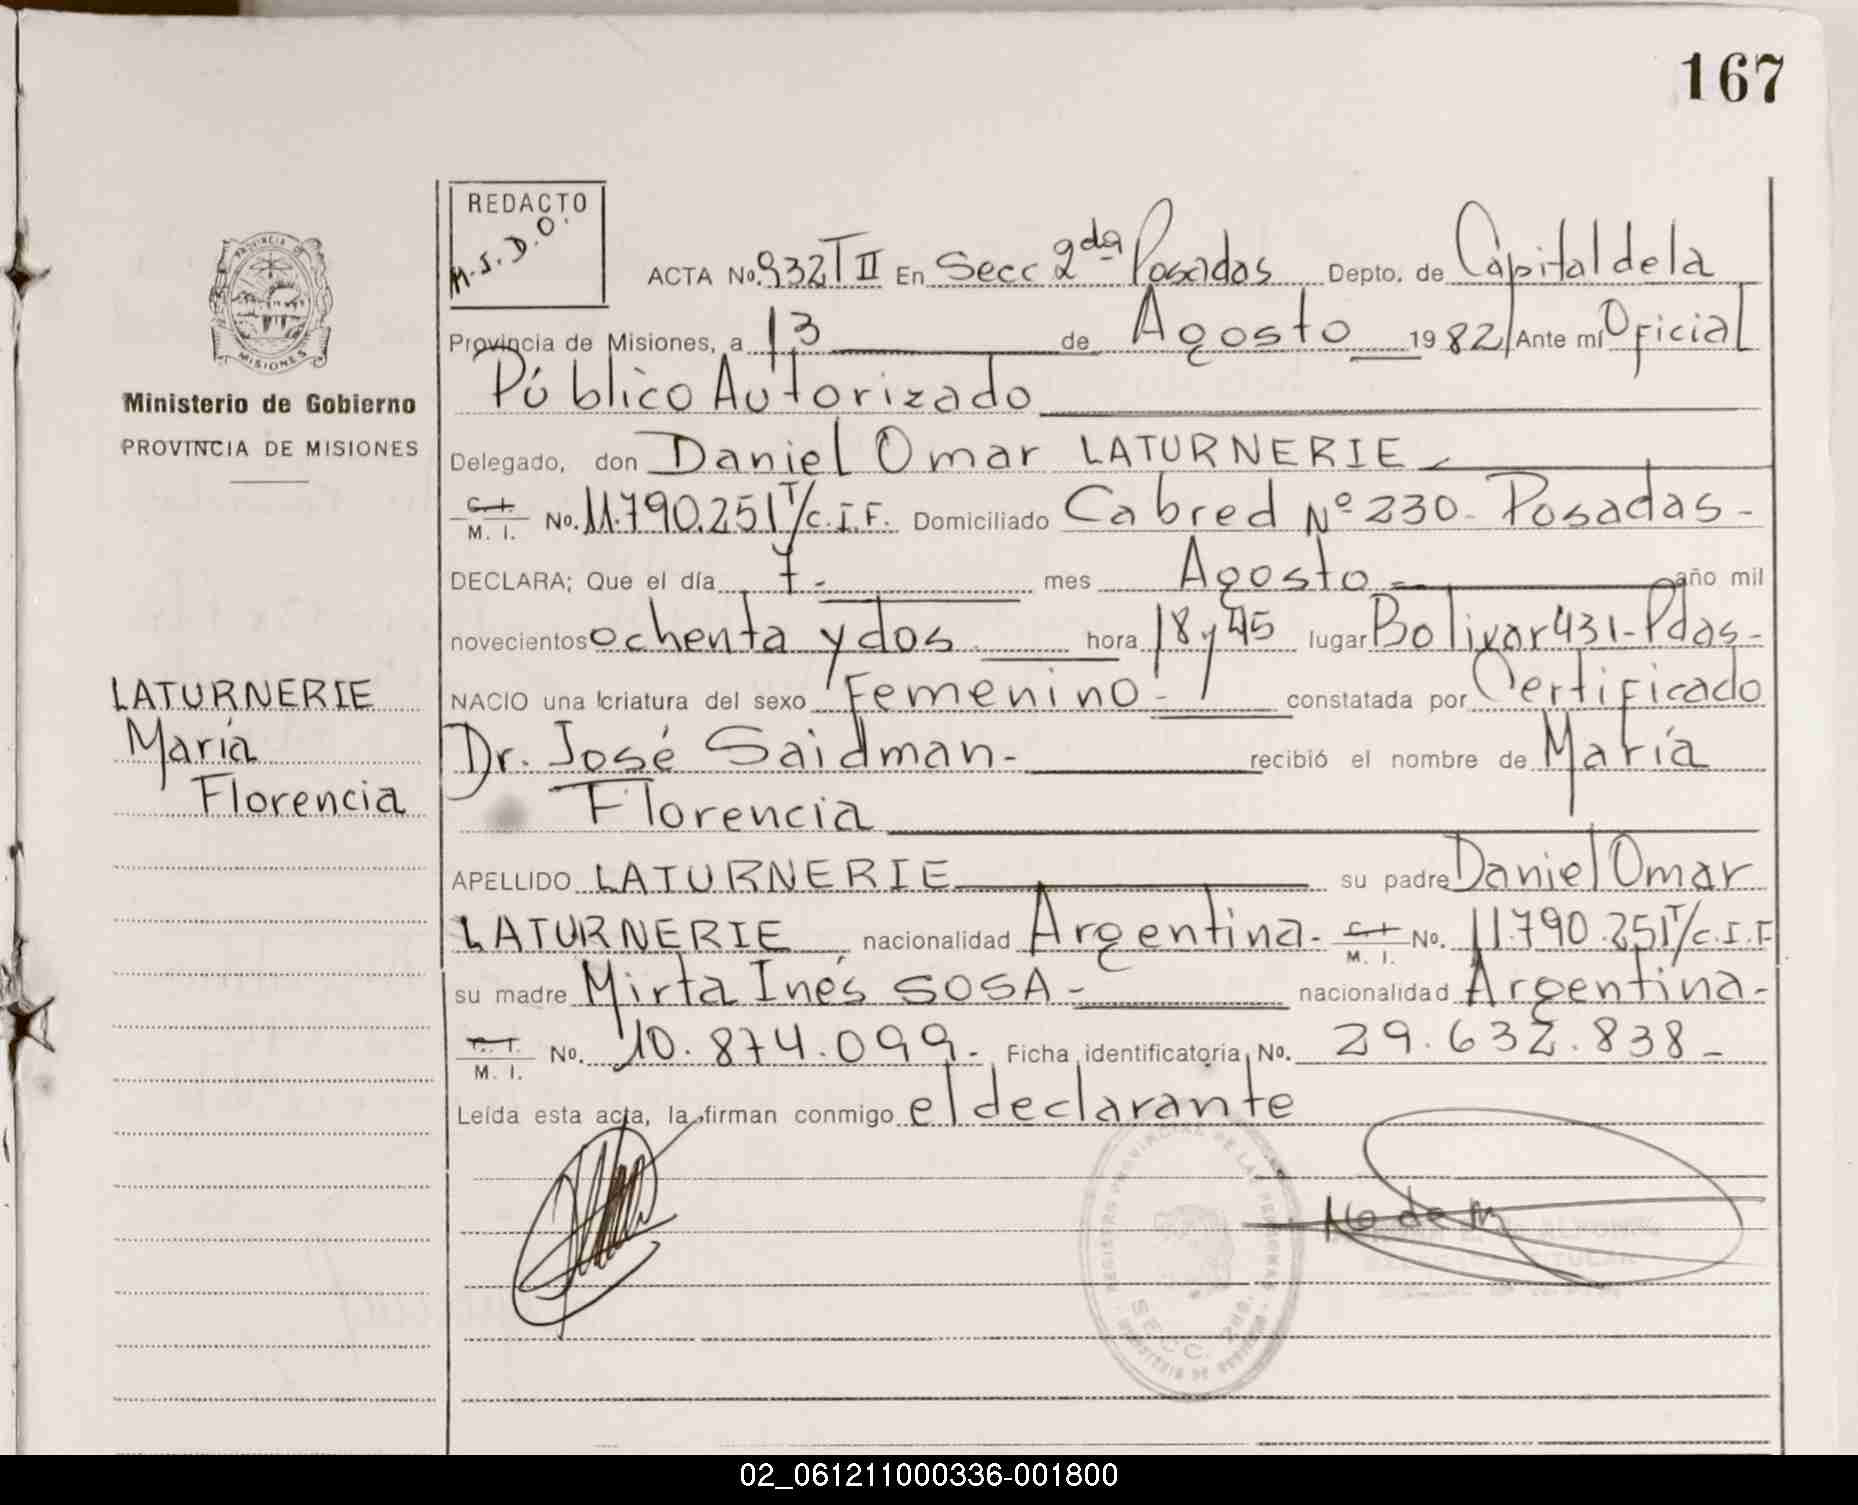 167
REDACTO
M.J.D.O.
ACTA No. 932 T II En Secc 2da Posadas Depto. de Capital de la
Provincia de Misiones, a 13 de Agosto 1982/ Ante mí Oficial
Público Autorizado
PROVINCIA DE
MISIONES
Ministerio de Gobierno
PROVINCIA DE MISIONES
Delegado, don Daniel Omar LATURNERIE
C. I.
M. I. No. 11.790.251 T/C.I.F. Domiciliado Cabred Nº 230- Posadas-
DECLARA; Que el día 7- mes Agosto- año mil
novecientos ochenta y dos hora 18 y 45 lugar Bolivar 431- Pdas-
LATURNERIE
María
Florencia
NACIO una criatura del sexo Femenino- constatada por Certificado
Dr. José Saidman- recibió el nombre de María
Florencia
APELLIDO LATURNERIE su padre Daniel Omar
LATURNERIE nacionalidad Argentina- C. I.
M. I. No. 11.790.251 T/C.I.F
su madre Mirta Inés SOSA- nacionalidad Argentina-
M. I. No. 10.874.099- Ficha identificatoria No. 29.632.838-
Leída esta acta, la firman conmigo el declarante
REGISTRO PROVINCIAL DE LAS PERSONAS
SECC. 2da.
MINISTERIO DE GOBIERNO
02_061211000336-001800